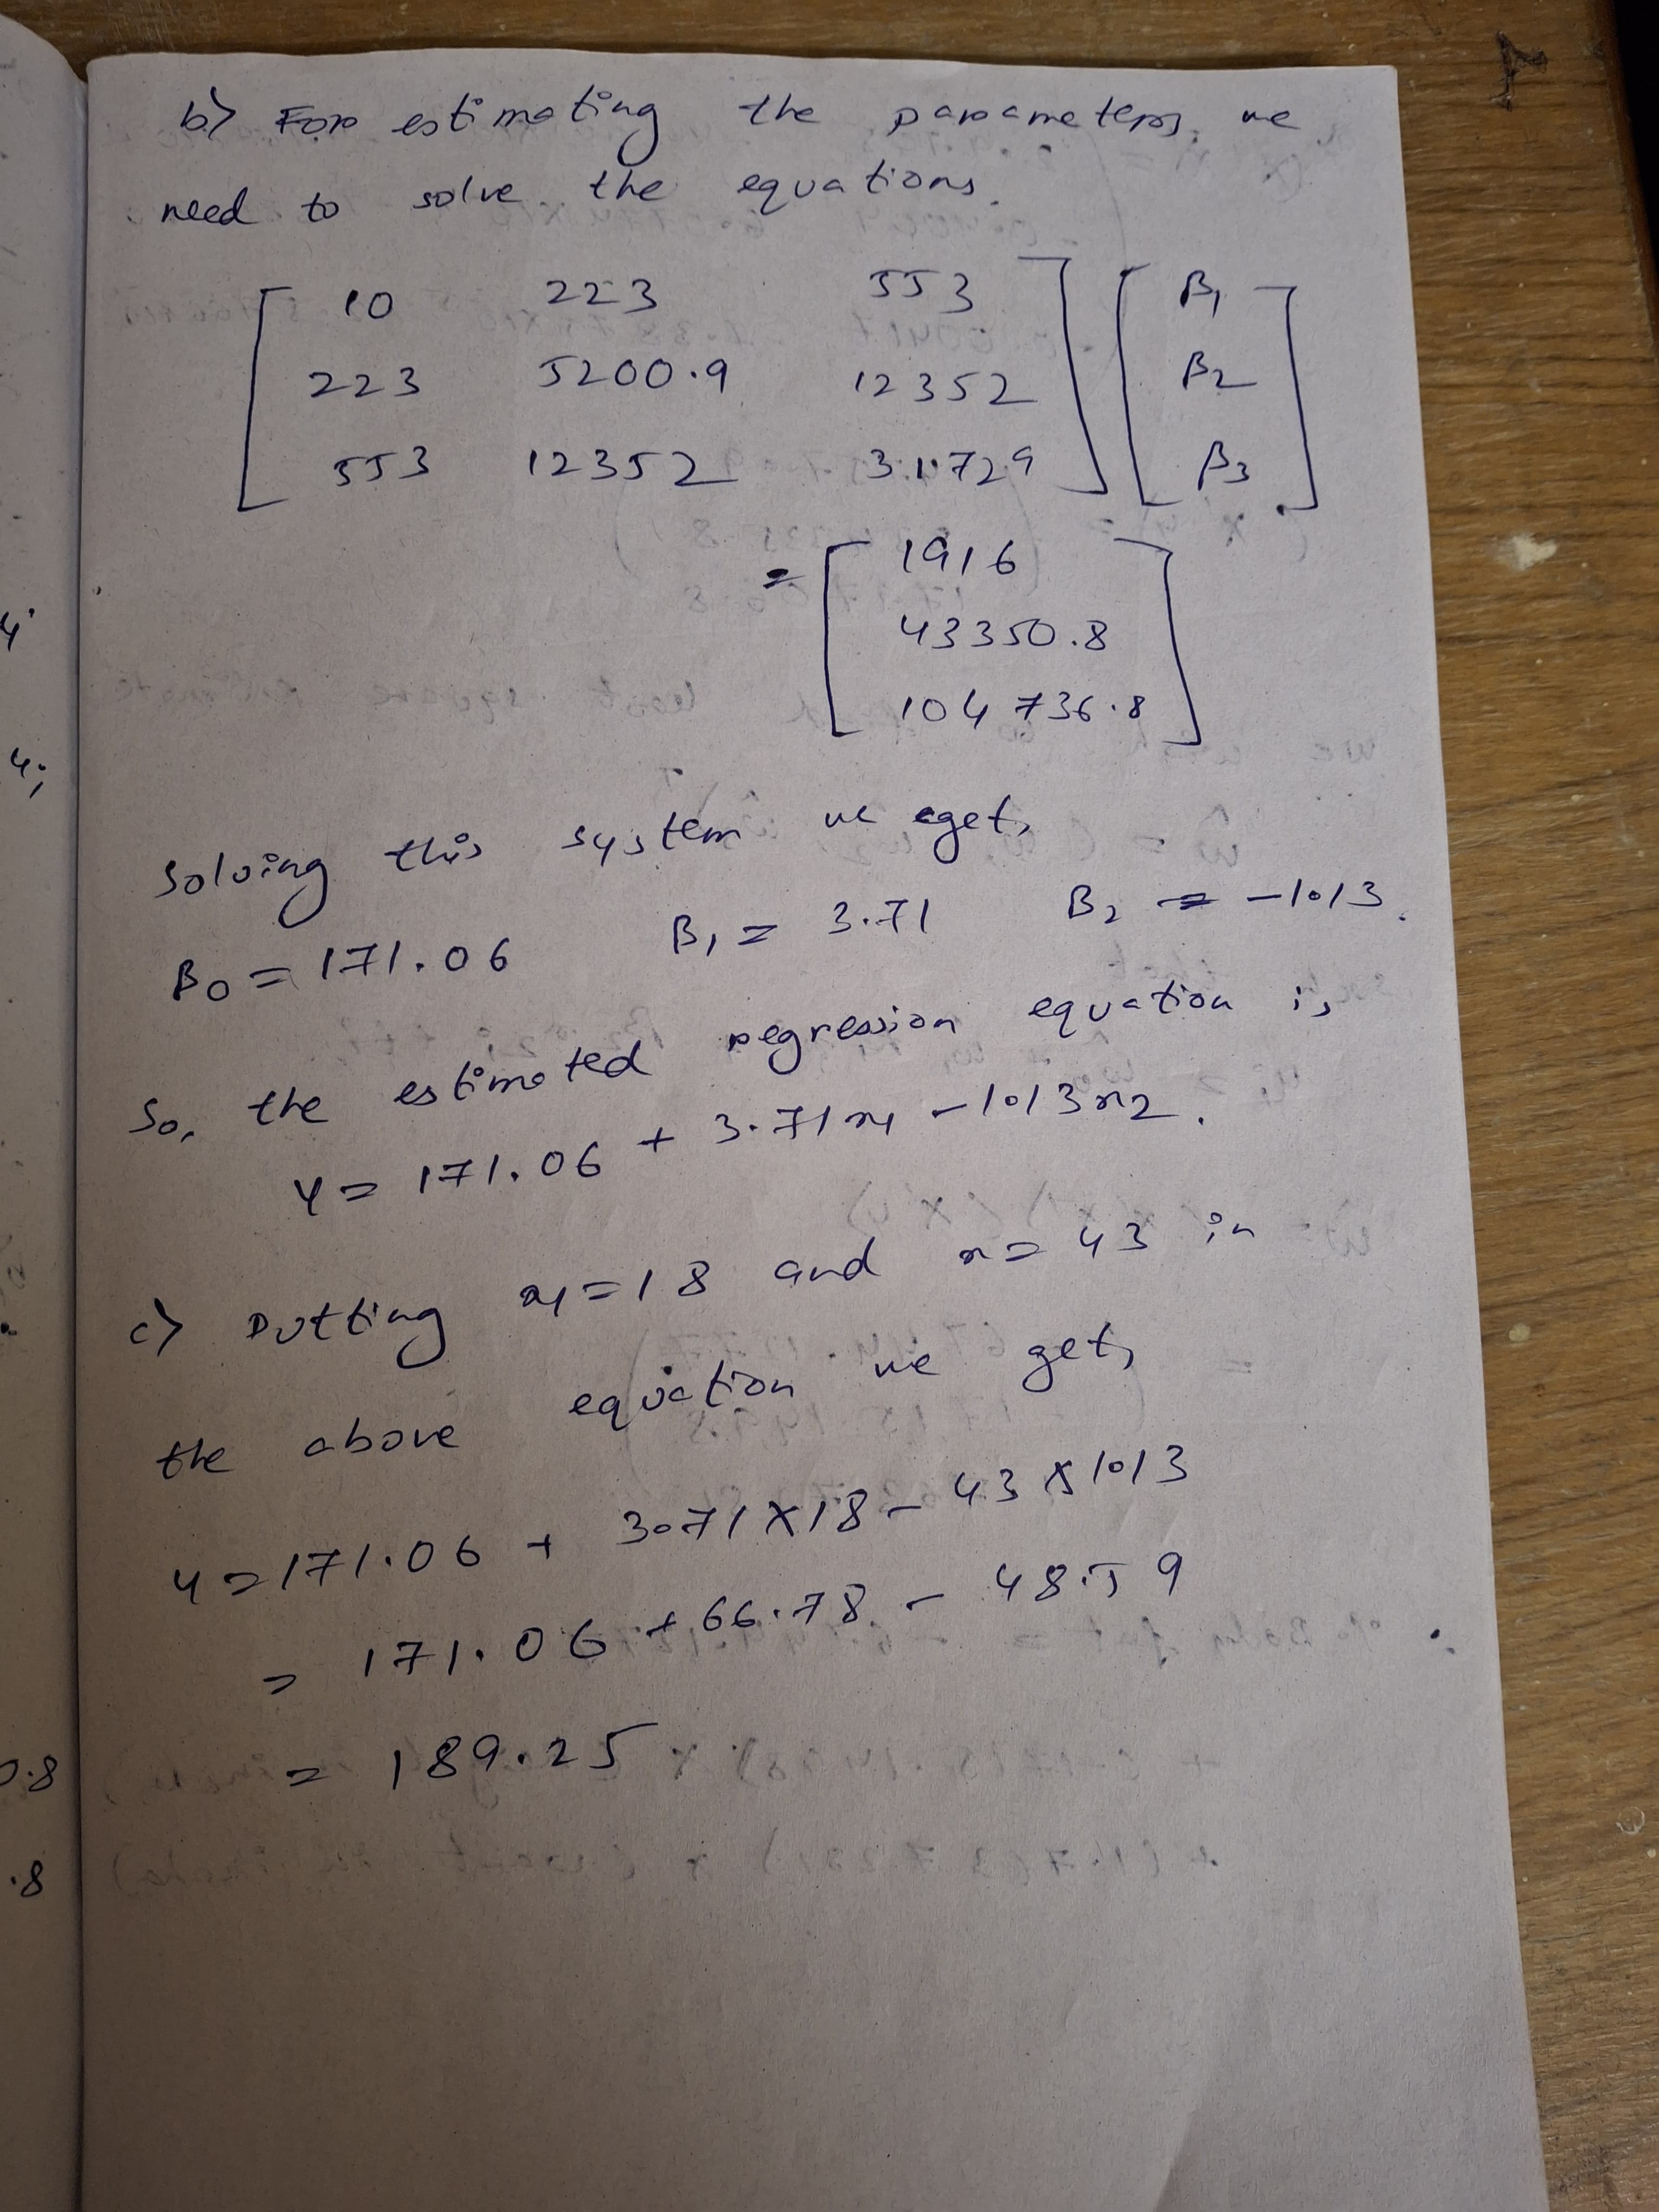 b) For estimating the parameters, we
need to solve the equations.
10 223 553 β1
223 5200.9 12352 β2
553 12352 31729 β3
= 1916
43350.8
104736.8
solving this system we get,
β0 = 171.06 β1 = 3.71 β2 = -1.13.
So, the estimated regression equation is
y = 171.06 + 3.71x1 - 1.13x2.
c) Putting x1 = 18 and x = 43 in
the above equation we get,
y = 171.06 + 3.71 × 18 - 43 × 1.13
= 171.06 + 66.78 - 48.59
= 189.25
4
4;
0.8
.8